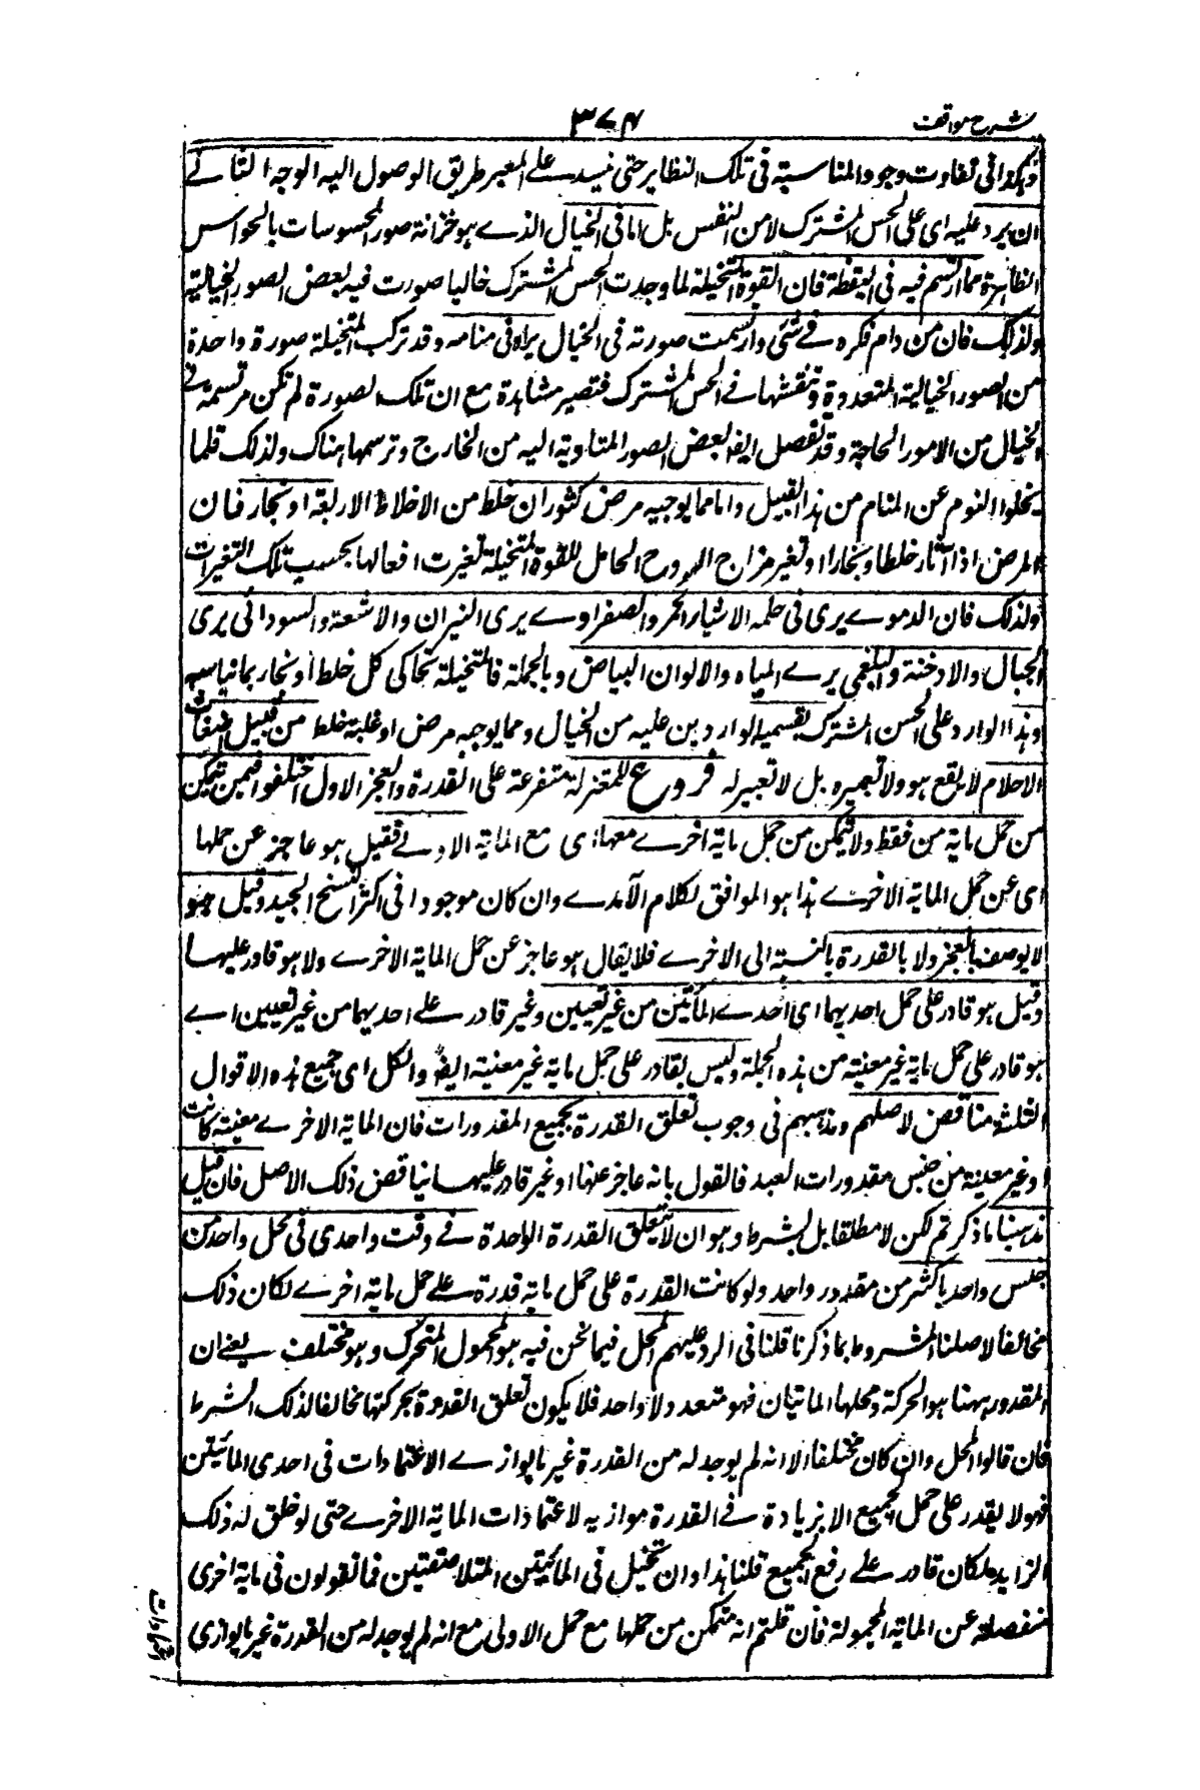 شرح مواقف
٣٧٤
وهكذا فى تفاوت وجوه المناسبة فى تلك النظاير حتى ينسد على المعبر طريق الوصول اليه الوجه الثانے
ان يرد عليه اى على الحس المشترك لا من النفس بل اما فى الخيال الذے هو خزانة صور المحسوسات بالحواس
الظاهرة مما ارتسم فيه فى اليقظة فان القوة المتخيلة لما وجدت الحس المشترك خاليا صورت فيه بعض الصور الخيالية
ولذلك فان من دام فكره فے شئى وارتسمت صورته فى الخيال يراه فى منامه وقد تركب المتخيلة صورة واحدة
من الصور الخيالية المتعددة وتنقشها فے الحس المشترك فتصير مشاهدة مع ان تلك الصورة لم تكن مرتسمة فے
الخيال من الامور الخارجة وقد تفصل ايضا بعض الصور المتادية اليه من الخارج وترسمها هناك ولذلك قلما
يخلوا النوم عن المنام من هذا القبيل واما مما يوجبه مرض كثوران خلط من الاخلاط الاربعة او بخار فان
المرض اذا اثار خلطا او بخارا او تغير مزاج الروح الحامل للقوة المتخيلة تغيرت افعالها بحسب تلك التغيرات
ولذلك فان الدموے يرى فى حلمه الاشياء الحمر والصفراوے يرى النيران والاشعة والسوداوى يرى
الجبال والادخنة والبلغمى يرے المياه والالوان البياض وبالجملة فالمتخيلة تحاكى كل خلط او بخار بما يناسبه
وهذا الوارد على الحس المشترك بقسميه الواردين عليه من الخيال ومما يوجبه مرض او غلبة خلط من قبيل اضغاث
الاحلام لا يقع هو ولا تعبيره بل لا تعبير له فروع للمعتزلة متفرعة على القدرة والعجز الاول اختلفوا فيمن يتمكن
من حمل ماية من فقط ولا يتمكن من حمل ماية اخرے معها اى مع الماية الاولے فقيل هو عاجز عن حملها
اى عن حمل الماية الاخرے هذا هو الموافق لكلام الآمدے وان كان موجودا فى اكثر النسخ الجيد وقيل هو
لا يوصف بالعجز ولا بالقدرة بالنسبة الى الاخرے فلا يقال هو عاجز عن حمل الماية الاخرے ولا هو قادر عليها
وقيل هو قادر على حمل احديهما اى احدے المأتين من غير تعيين وغير قادر علے احديهما من غير تعيين اے
هو قادر على حمل ماية غير معينة من هذه الجملة وليس بقادر على حمل ماية غير معينة ايضا والكل اى جميع هذه الاقوال
الثلثة مناقض لاصلهم ومذهبهم فى وجوب تعلق القدرة بجميع المقدورات فان الماية الاخرے معينة كانت
او غير معينة من جنس مقدورات العبد فالقول بانه عاجز عنها او غير قادر عليها يناقض ذلك الاصل فان قيل
مذهبنا ما ذكرتم لكن لا مطلقا بل بشرط وهو ان لا يتعلق القدرة الواحدة فے وقت واحدى فى محل واحد من
جنس واحد باكثر من مقدور واحد ولو كانت القدرة على حمل ماية قدرة علے حمل ماية اخرے لكان ذلك
مخالفا لاصلنا المشروط بما ذكرنا قلنا فى الرد عليهم المحل فيما نحن فيه هو المحمول المتحرك وهو مختلف يعنے ان
المقدور ههنا هو الحركة ومحلها الماتيان فهو متعدد ولا واحد فلا يكون تعلق القدرة بحركتها مخالفا لذلك الشرط
فان قالوا المحل وان كان مختلفا الا انه لم يوجد له من القدرة غير ما يوازے الاعتمادات فى احدى المائيتين
فهو لا يقدر على حمل الجميع الا بزيادة فے القدرة موازيه لاعتمادات الماية الاخرے حتى لو خلق له ذلك
الزايد لكان قادر علے رفع الجميع قلنا هذا وان تخيل فى المائيتين المتلاصقتين فما تقولون فى ماية اخرى
منفصلة عن الماية المحمولة فان قلتم انه متمكن من حملها مع حمل الاولى مع انه لم يوجد له من القدرة غير ما يوازى